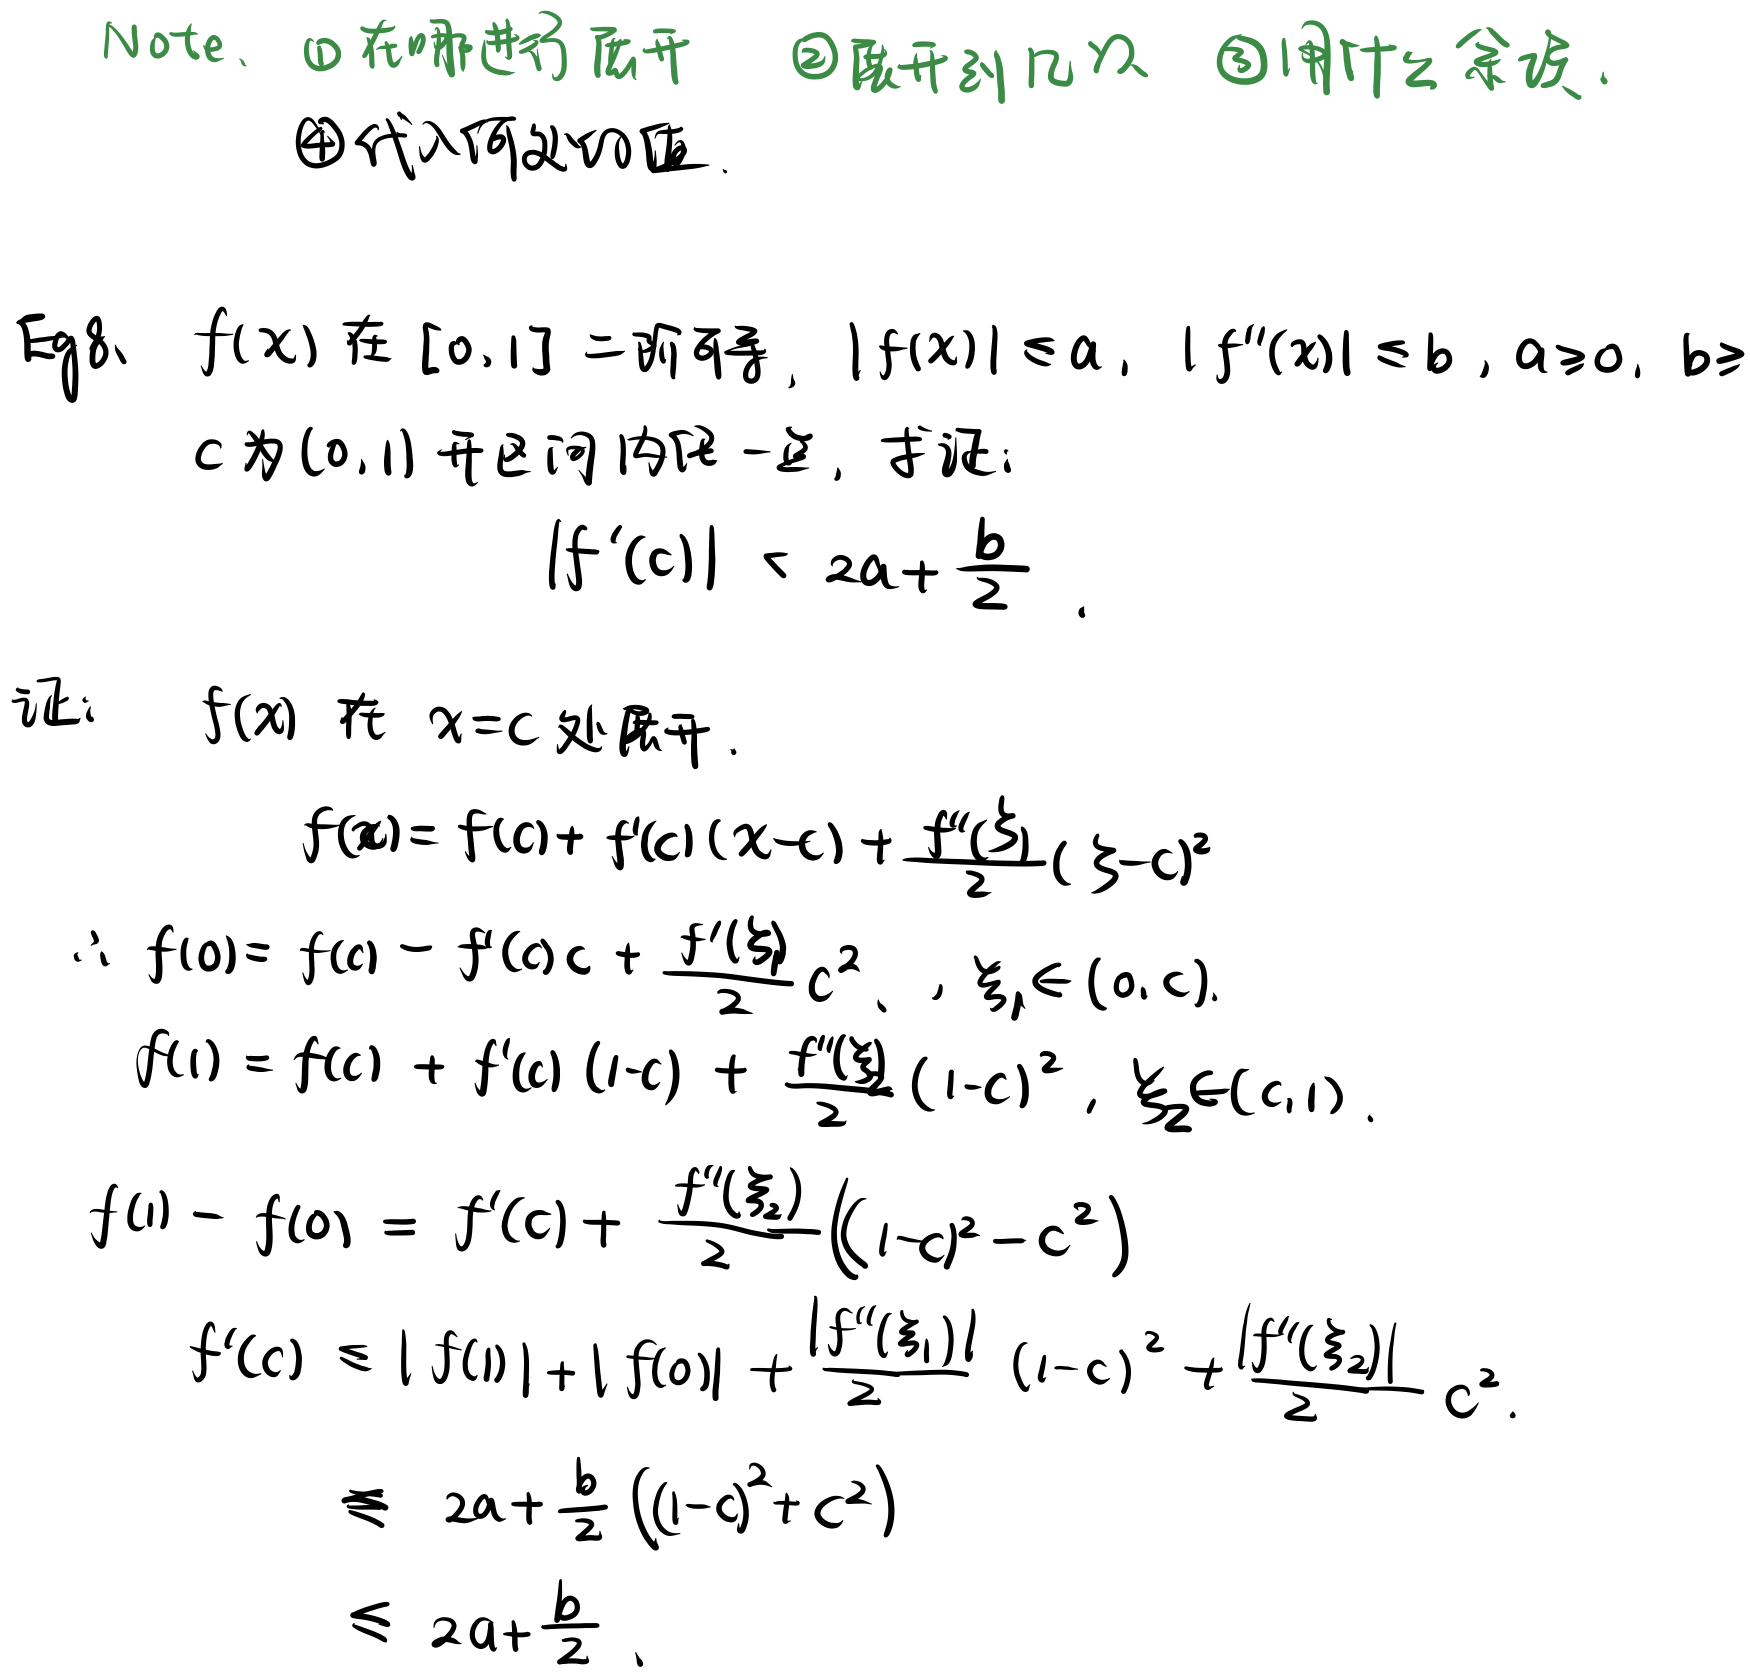 Note、 ①在哪进行展开 ②展开到几次 ③用什么余项.
④代入何处的值.
Eg8、 f(x) 在 [0,1] 二阶可导, |f(x)| ≤ a, |f''(x)| ≤ b, a≥0, b≥
c 为 (0,1) 开区间内任一点, 求证:
|f'(c)| < 2a + b/2 .
证: f(x) 在 x=c 处展开.
f(x) = f(c) + f'(c)(x-c) + f''(ξ)/2 (ξ-c)²
∴ f(0) = f(c) - f'(c)c + f'(ξ₁)/2 c²、, ξ₁∈(0,c).
f(1) = f(c) + f'(c)(1-c) + f''(ξ₂)/2 (1-c)², ξ₂∈(c,1).
f(1) - f(0) = f'(c) + f''(ξ₂)/2 ((1-c)² - c²)
f'(c) ≤ |f(1)| + |f(0)| + |f''(ξ₁)|/2 (1-c)² + |f''(ξ₂)|/2 c².
≤ 2a + b/2 ((1-c)² + c²)
≤ 2a + b/2 、